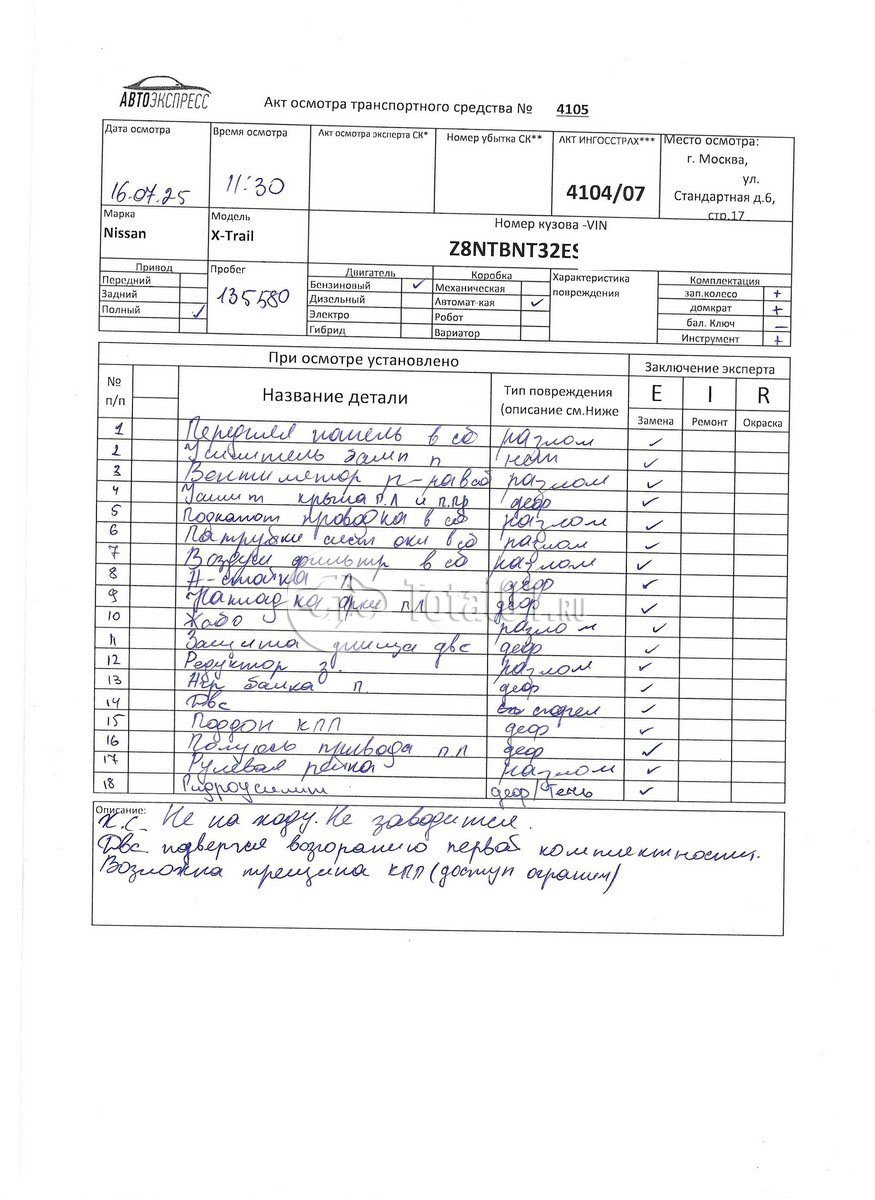 АВТОЭКСПРЕСС
Акт осмотра транспортного средства № 4105
Дата осмотра
16.07.25
Время осмотра
11:30
Акт осмотра эксперта СК*
Номер убытка СК**
АКТ ИНГОССТРАХ***
4104/07
Место осмотра:
г. Москва,
ул.
Стандартная д.6,
стр.17
Марка
Nissan
Модель
X-Trail
Номер кузова -VIN
Z8NTBNT32ES
Привод
Передний
Задний
Полный ✓
Пробег
135580
Двигатель
Бензиновый ✓
Дизельный
Электро
Гибрид
Коробка
Механическая
Автомат-кая ✓
Робот
Вариатор
Характеристика
повреждения
Комплектация
зап.колесо +
домкрат +
бал. Ключ —
Инструмент +
При осмотре установлено
Заключение эксперта
№
п/п
Название детали
Тип повреждения
(описание см.Ниже
E I R
Замена Ремонт Окраска
1 Передняя панель в сб разлом ✓
2 Усилитель бамп п ✓
3 Вентилятор разлом ✓
4 Усилит крыла п Л и п.пр деф ✓
5 Подкапот проводка в сб разлом ✓
6 Патрубки сист в сб разлом ✓
7 Воздуш фильтр в сб разлом ✓
8 А-стойка Л деф ✓
9 Накладка арки п Л деф ✓
10 разлом ✓
11 Защита днища двс деф ✓
12 Редуктор з. разлом ✓
13 балка п деф ✓
14 Двс сгорел ✓
15 Поддон КПП деф ✓
16 Полуось привода п Л деф ✓
17 Рулевая рейка разлом ✓
18 Гидроусилит деф/Течь ✓
Описание:
Х.С. Не на ходу. Не заводится.
Двс подвергся возгоранию первой комплектности.
Возможна трещина КПП (доступ огранич)
Total01.RU